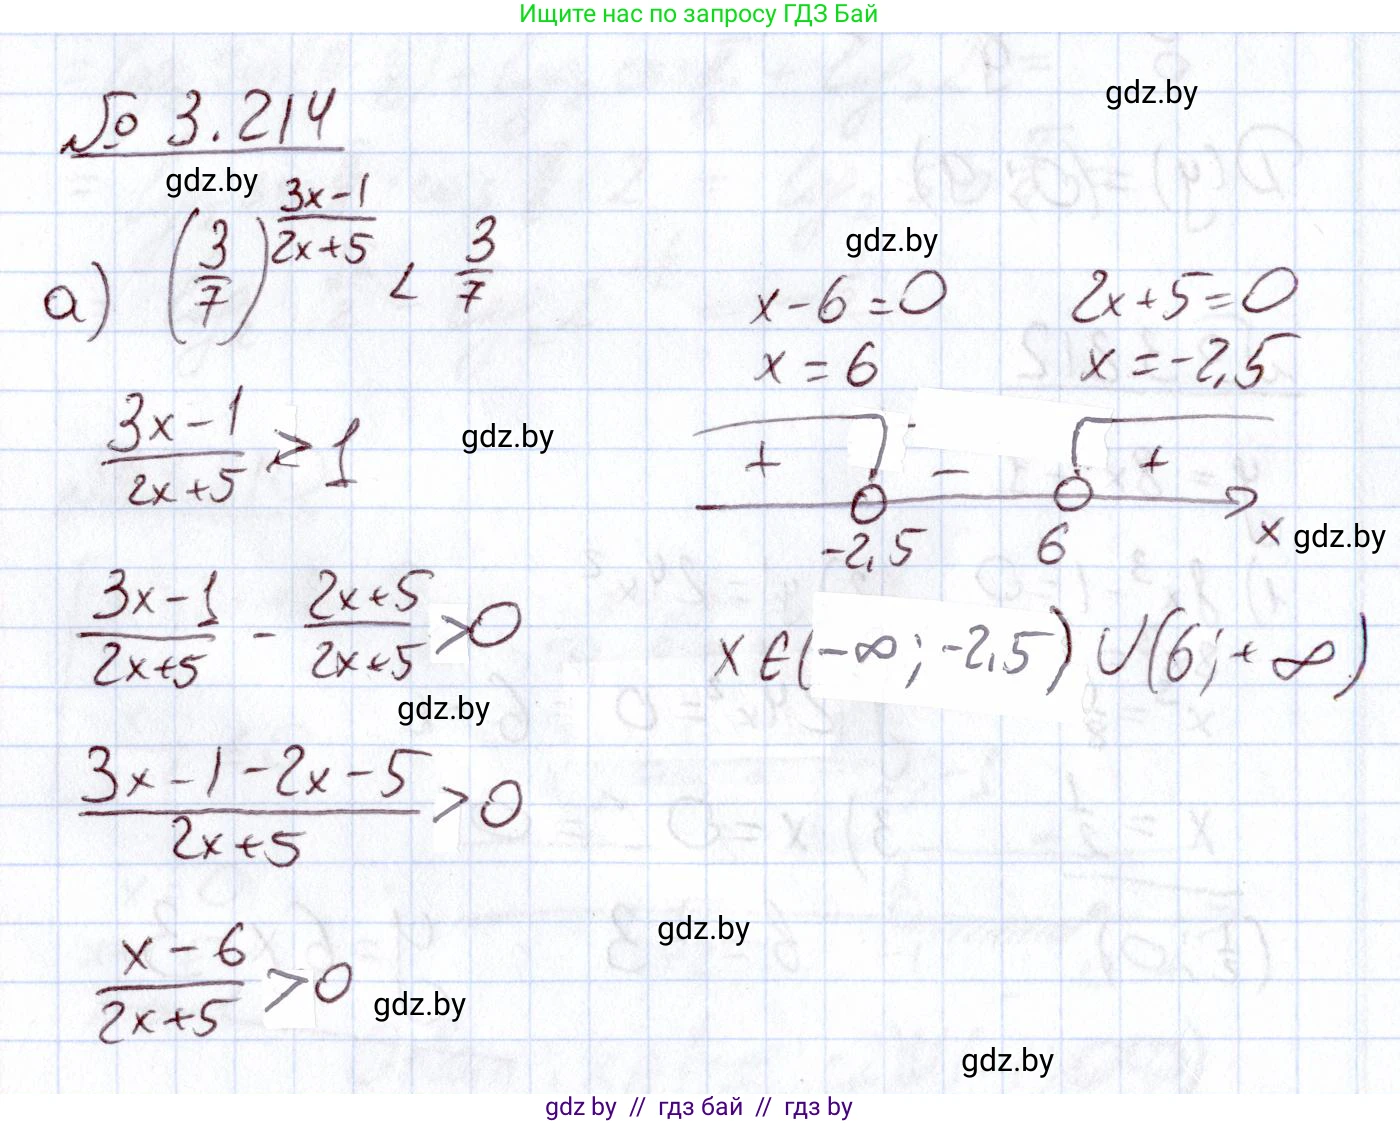 Ищите нас по запросу ГДЗ Бай
gdz.by
№ 3.214
gdz.by
а) (3/7)^((3x-1)/(2x+5)) < 3/7
(3x-1)/(2x+5) > 1
gdz.by
(3x-1)/(2x+5) - (2x+5)/(2x+5) > 0
gdz.by
(3x-1-2x-5)/(2x+5) > 0
(x-6)/(2x+5) > 0
gdz.by
gdz.by
x-6=0 2x+5=0
x=6 x=-2,5
+ - +
-2,5 6 x gdz.by
x∈(-∞; -2,5) ∪ (6; +∞)
gdz.by
gdz.by
gdz by // гдз бай // гдз by